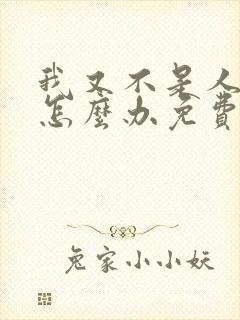 我又不是人
怎麼办免費
兔家小小妖